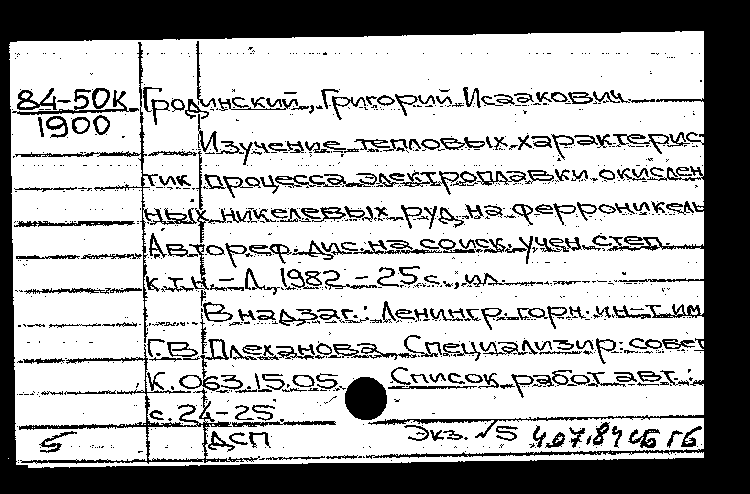 84-50К Гродинский, Григорий Исаакович
1900
Изучение тепловых характерис
тик процесса электроплавки окислен
ных никелевых руд на ферроникель
Автореф. дис. на соиск. учен. степ.
к.т.н. - Л., 1982 - 25 с., ил.
В надзаг.: Ленингр. горн. ин-т им
Г.В. Плеханова. Специализир. совет
К.063.15.05. Список работ авт.:
с. 24-25.
5 ДСП Экз. №5 4.07.84